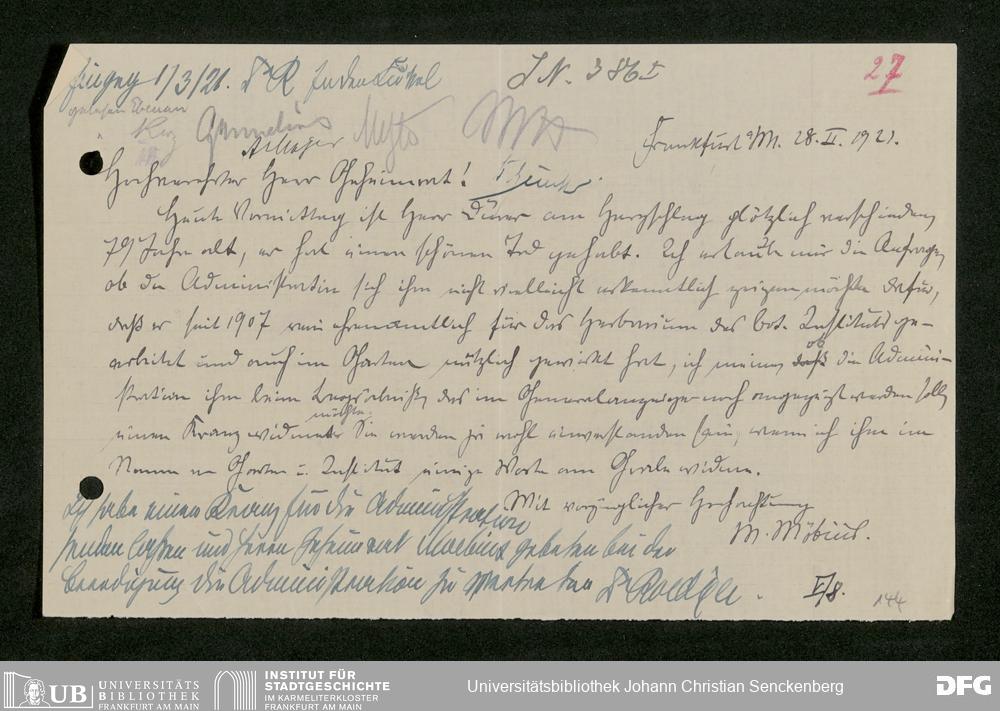 Eingeg. 1/3/21. Dr R In den Cirkel
J N. 386 I
27
gelesen
Frankfurt a/M. 28. II. 1921.
Hochverehrter Herr Geheimrat!
Heute Vormittag ist Herr Dürer am Herzschlag plötzlich verschieden,
79 Jahre alt, er hat einen schönen Tod gehabt. Ich erlaube mir die Anfrage,
ob die Administration sich ihm nicht vielleicht erkenntlich zeigen möchte dafür,
daß er seit 1907 rein ehrenamtlich für das Herbarium des bot. Instituts ge-
arbeitet und auch im Garten nützlich gewirkt hat, ich meine, ob die Admini-
stration ihm beim Begräbnis, das im Generalanzeiger noch angezeigt werden soll,
einen Kranz widmen möchte. Sie werden ja wohl einverstanden sein, wenn ich ihm im
Namen von Garten u. Institut einige Worte am Grabe widme.
Mit vorzüglicher Hochachtung
M. Möbius.
Ich habe einen Kranz für die Administration
senden lassen und Herrn Geheimrat Moebius gebeten bei der
Beerdigung die Administration zu vertreten Dr Roediger.
I/8.
144
UB UNIVERSITÄTS
BIBLIOTHEK
FRANKFURT AM MAIN
INSTITUT FÜR
STADTGESCHICHTE
IM KARMELITERKLOSTER
FRANKFURT AM MAIN
Universitätsbibliothek Johann Christian Senckenberg
DFG